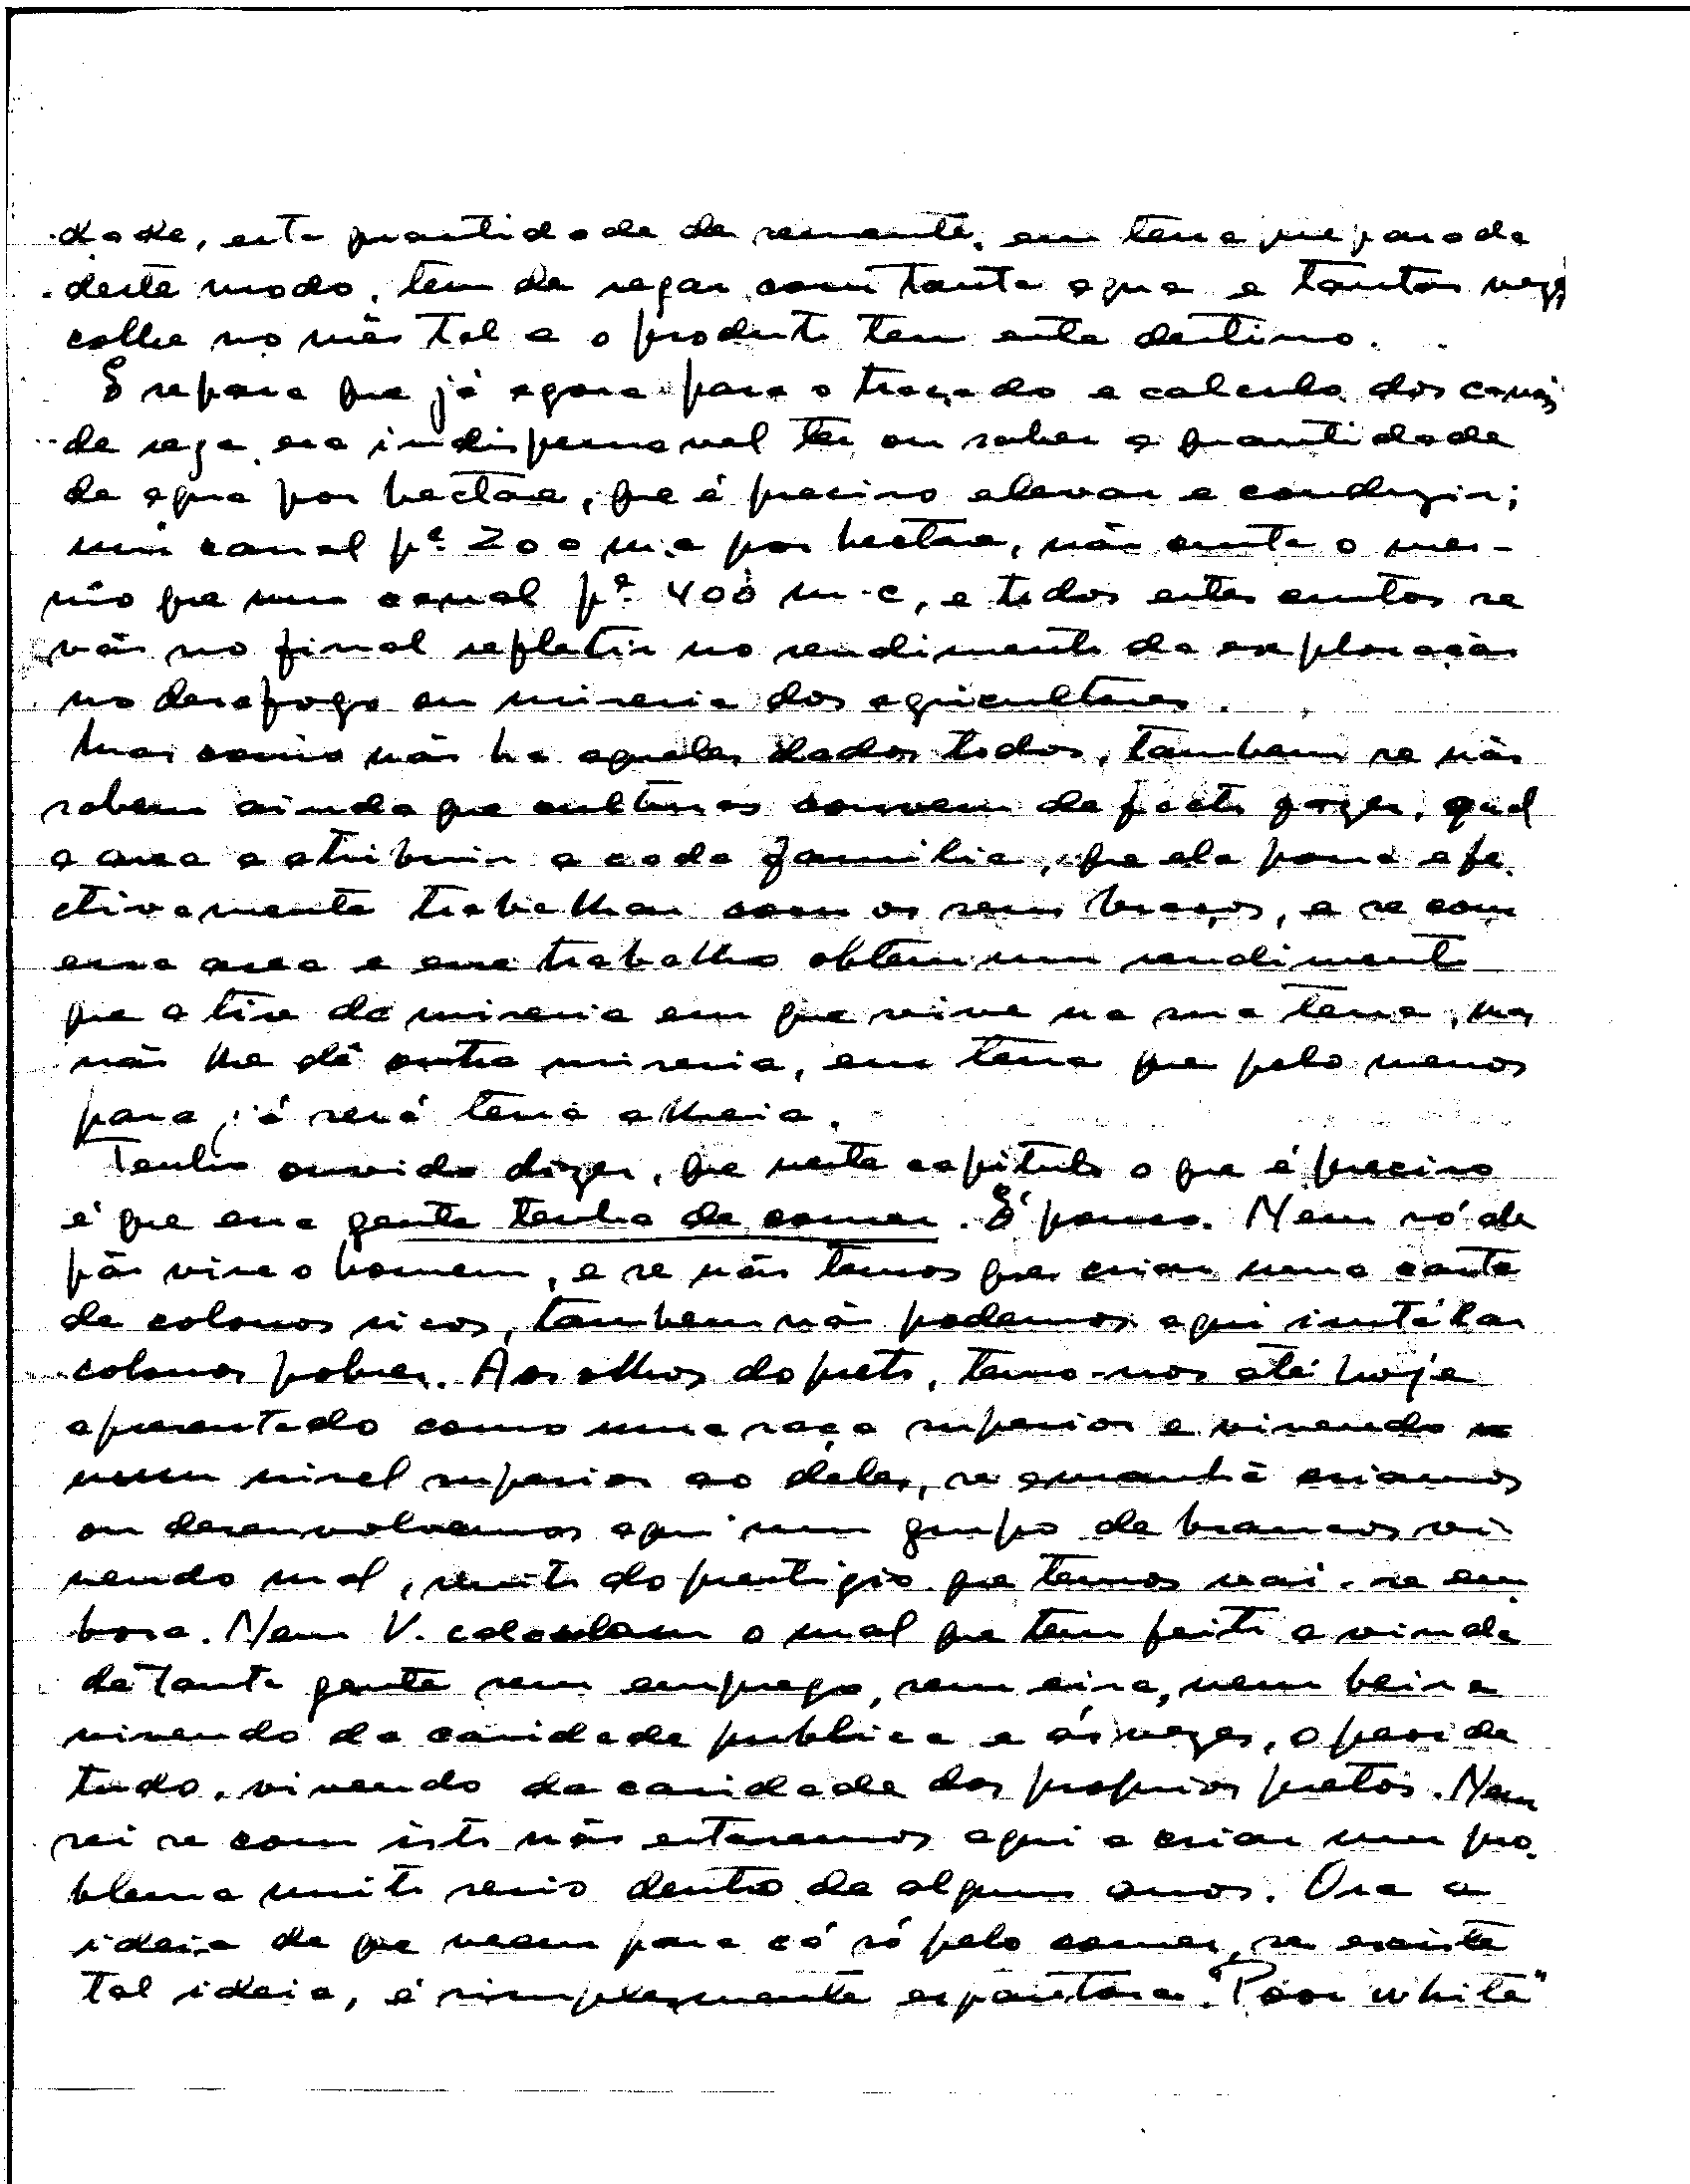 dade, esta quantidade de semente, em terra preparada
deste modo, tem de regar com tanta agua e tantas vezes
colhe no mês tal e o produto tem este destino.
E repara que já agora para o traçado e calculo dos canais
de rega era indispensavel ter ou saber a quantidade
de agua por hectare, que é preciso elevar e conduzir;
um canal pª. 200 m.c por hectare, não custa o mes-
mo que um canal pª. 400 m.c, e todos estes custos se
vão no final refletir no rendimento da exploração
no desafogo ou miseria dos agricultores.
Mas como não ha aqueles dados todos, tambem se não
sabem ainda que culturas convem de facto fazer, qual
a area a atribuir a cada familia, que ela possa efe
ctivamente trabalhar com os seus braços, e se com
essa area e esse trabalho obtem um rendimento
que a tire da miseria em que vive na sua terra, mas
não lhe dê outra miseria, em terra que pelo menos
para já será terra alheia.
Tenho ouvido dizer, que neste capitulo o que é preciso
é que essa gente tenha de comer. É pouco. Nem só de
pão vive o homem, e se não temos que criar uma casta
de colonos ricos, tambem não podemos aqui instalar
colonos pobres. Aos olhos do preto, temo-nos até hoje
apresentado como uma raça superior e vivendo
num nivel superior ao deles, se amanhã criamos
ou desenvolvemos aqui um grupo de brancos vi
vendo mal, muito do prestigio que temos vai-se em
bora. Nem V. calculam o mal que tem feito a vinda
de tanta gente sem emprego, sem eira, nem beira
vivendo da caridade publica e ás vezes, o peor de
tudo, vivendo da caridade dos proprios pretos. Nem
sei se com isto não estaremos aqui a criar um pro
blema muito serio dentro de alguns anos. Ora a
ideia de que veem para cá só pelo comer, se existe
tal ideia, é simplesmente espantosa. "Poor white"